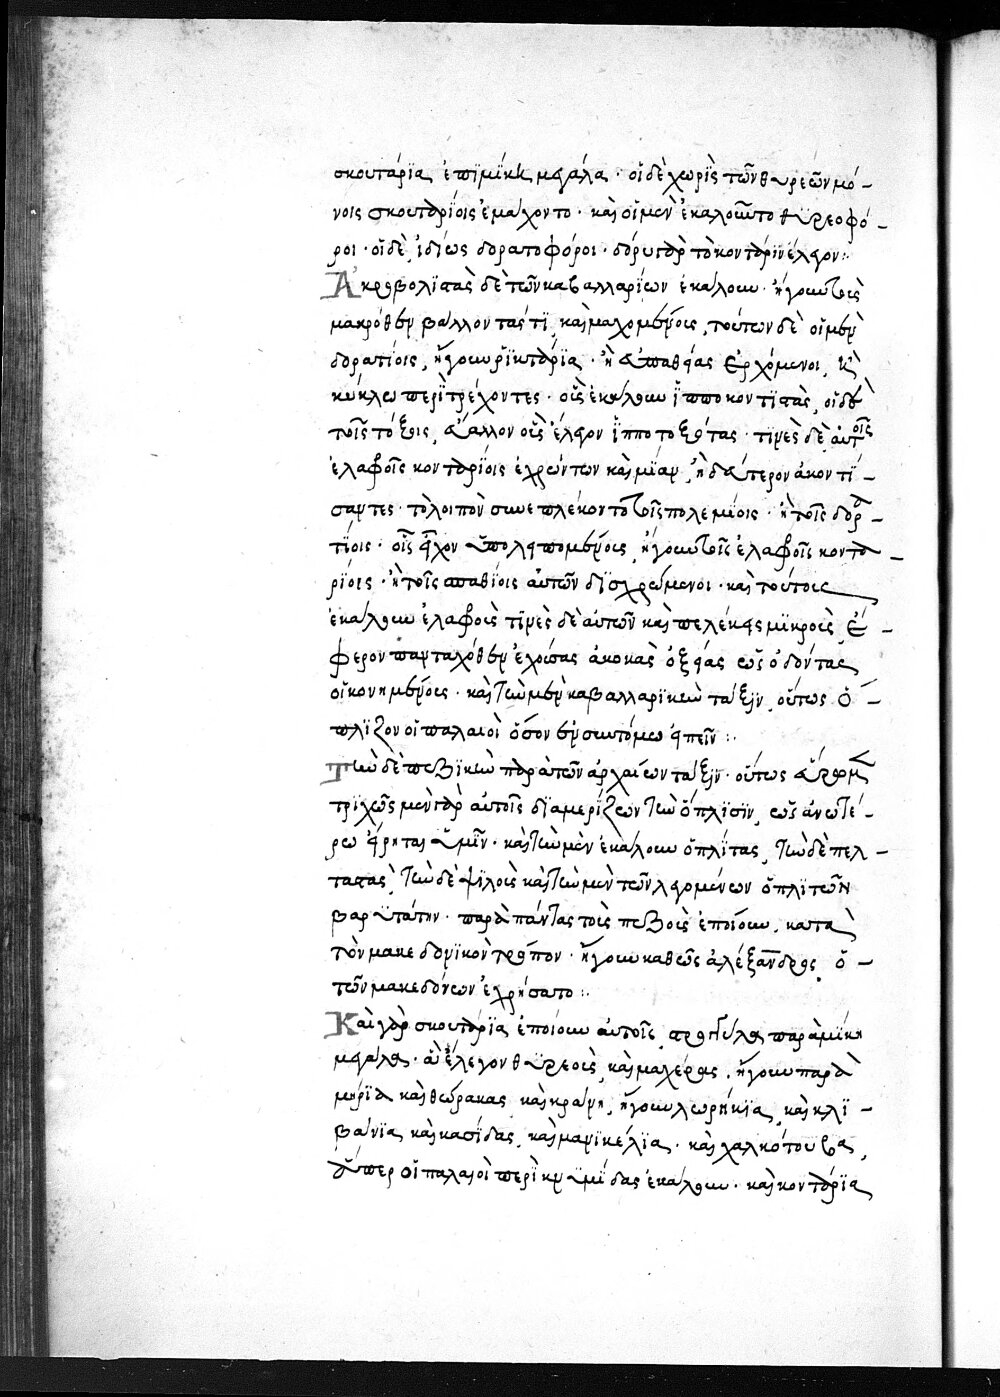 σκουτάρϊα ἐπϊμϊκη μεγάλα · οἵ δὲ χωρῒς τῶν θυρεῶν μό-
νοις σκουταρϊοις ἐμάχοντο · καὶ οἵ μὲν ἐκαλοῦντο θϋρεοφό-
ροι · οἵ δὲ ἰδίως δορατοφόροι · δόρυ γὰρ τὸ κοντάριν ἔλεγον :
Ἀκροβολϊστὰς δὲ τῶν καβαλλαρίων ἐκάλουν · ἤγουν τοὺς
μακρόθεν βάλλοντάς τϊ, καὶ μαχομένους, τούτων δὲ οἵ μὲν
δορατίοις, ἤγουν ῥϊκτάρϊα · ἢ σπαθέας ἐρχόμενοι, καὶ
κύκλω περϊτρέχοντες · οὓς ἐκάλουν ἵπποκοντϊστὰς, οἵ δὲ
τοῖς τόξοις ἔβαλλον οὓς ἔλεγον ἵπποτοξότας · τϊνὲς δὲ αὐτοῖς
ἐλαφροῖς κονταρϊοις ἐχρῶντων καὶ μϊαν, ἢ δεύτερον ἀκοντϊ-
σαντες · τὸ λοιπὸν συνεπλέκοντο τοῖς πολεμίοις · ἢ τοῖς δορα-
τϊοις · οἷς εἶχον ὑπολειπομένοις, ἤγουν τοῖς ἐλαφροῖς κοντα-
ρϊοις · ἢ τοῖς σπαθϊοις αὐτῶν δϊσχρώμενοι · καὶ τούτους
ἐκάλουν ἐλαφροὺς τϊνὲς δὲ αὐτῶν καὶ πελέκεις μϊκροὺς, ἐ-
φερον πανταχόθεν ἐχούσας ἀκονὰς ὀξείας ὡς ὀδόντας
οἰκονημένους · καὶ τὴν μὲν καβαλλαρϊκὴν τάξϊν, οὕτως ὅ-
πλϊζον οἵ παλαιοὶ ὅσον ἐν συντόμω εἰπεῖν :
Τὴν δὲ πεζϊκὴν παρὰ τῶν ἀρχαίων τάξϊν · οὕτως εὕρομεν
τρϊχῶς μὲν γὰρ αὐτοῖς δϊαμερίζων τὴν ὅπλϊσϊν, ὡς ἀνωτέ-
ρω εἴρηται ὑμῖν · καὶ τὴν μὲν ἐκάλουν ὁπλϊτας, τὴν δὲ πελ-
ταστὰς, τὴν δὲ ψϊλοὺς καὶ τὴν μὲν τῶν λεγομένων ὁπλϊτῶν
βαρυτάτην · παρὰ πάντας τοὺς πεζοὺς ἐποίουν, κατὰ
τὸν μακεδονϊκὸν τρόπον · ἤγουν καθὼς ἀλέξανδρος, ὁ-
τῶν μακεδόνων ἐχρήσατο :
Καὶ γὰρ σκουτάρϊα ἐποίουν αὐτοῖς στρογγύλα παραμϊκη
μεγάλα · ἃ ἔλεγον θϋρεοὺς, καὶ μαχέρας, ἤγουν παρα
μήρϊα καὶ θώρακας, καὶ κράνη, ἤγουν λωρήκϊα, καὶ κλϊ-
βάνϊα καὶ κασίδας, καὶ μανϊκέλϊα · καὶ χαλκότουβα,
ἅπερ οἵ παλαιοὶ περϊκνϋμϊδας ἐκάλουν · καὶ κοντάρϊα